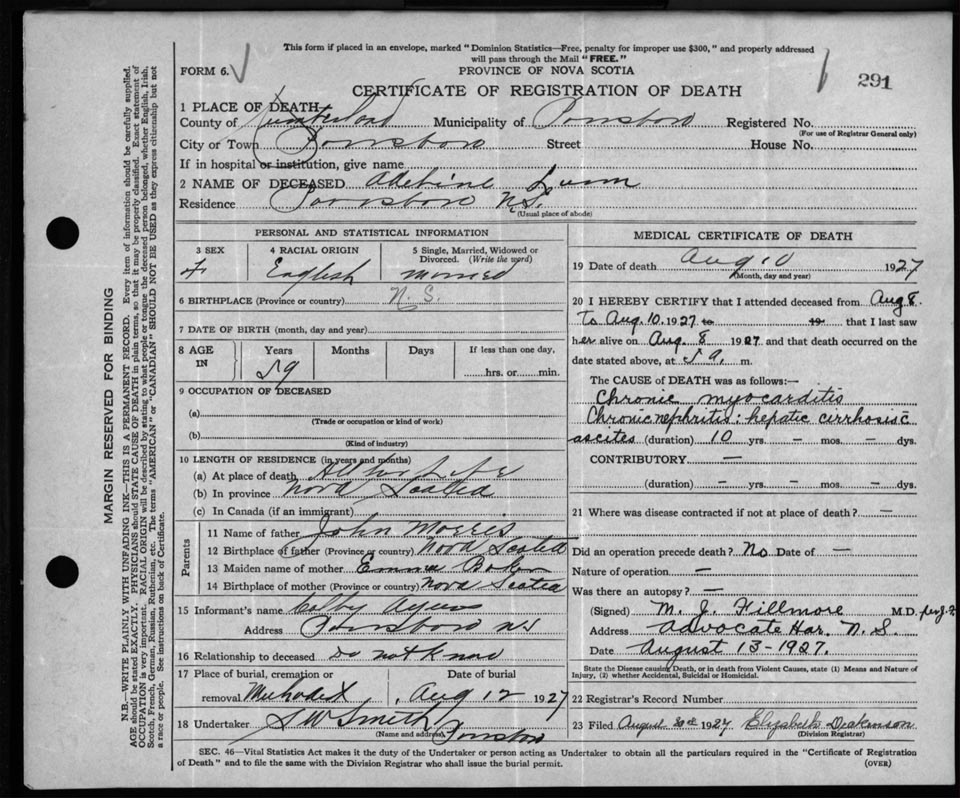 This form if placed in an envelope, marked "Dominion Statistics—Free, penalty for improper use $300," and properly addressed
will pass through the Mail "FREE."
FORM 6.
PROVINCE OF NOVA SCOTIA
291
CERTIFICATE OF REGISTRATION OF DEATH
1 PLACE OF DEATH
County of Cumberland Municipality of Parrsboro Registered No.
(For use of Registrar General only)
City or Town Parrsboro Street House No.
If in hospital or institution, give name
2 NAME OF DECEASED
Residence Parrsboro N.S.
(Usual place of abode)
PERSONAL AND STATISTICAL INFORMATION
3 SEX
4 RACIAL ORIGIN
5 Single, Married, Widowed or
Divorced. (Write the word)
f English Married
6 BIRTHPLACE (Province or country) N. S.
7 DATE OF BIRTH (month, day and year)
8 AGE
IN
Years Months Days If less than one day,
59 hrs. or min.
9 OCCUPATION OF DECEASED
(a)
(Trade or occupation or kind of work)
(b)
(Kind of industry)
10 LENGTH OF RESIDENCE (in years and months)
(a) At place of death All her Life
(b) In province Nova Scotia
(c) In Canada (if an immigrant)
Parents
11 Name of father John Morris
12 Birthplace of father (Province or country) Nova Scotia
13 Maiden name of mother Emma
14 Birthplace of mother (Province or country) Nova Scotia
15 Informant's name
Address Parrsboro N.S
16 Relationship to deceased Do not Know
17 Place of burial, cremation or Date of burial
removal Methodist, Aug 12 1927
18 Undertaker S W Smith
(Name and address) Parrsboro
MEDICAL CERTIFICATE OF DEATH
19 Date of death Aug 10 1927
(Month, day and year)
20 I HEREBY CERTIFY that I attended deceased from Aug 8.
to Aug. 10. 1927 to 19 that I last saw
her alive on Aug. 8 1927 and that death occurred on the
date stated above, at 5 a. m.
The CAUSE of DEATH was as follows:—
Chronic myocarditis
Chronic nephritis: hepatic cirrhosis c̄
ascites (duration) 10 yrs. - mos. - dys.
CONTRIBUTORY —
(duration) - yrs. - mos. - dys.
21 Where was disease contracted if not at place of death? —
Did an operation precede death? No Date of —
Nature of operation —
Was there an autopsy? —
(Signed) M. J. Fillmore M.D.
Address Advocate Har. N. S.
Date August 13-1927.
State the Disease causing Death, or in death from Violent Causes, state (1) Means and Nature of
Injury, (2) whether Accidental, Suicidal or Homicidal.
22 Registrar's Record Number
23 Filed August 20th 1927 Elizabeth Dickinson
(Division Registrar)
SEC. 46—Vital Statistics Act makes it the duty of the Undertaker or person acting as Undertaker to obtain all the particulars required in the "Certificate of Registration
of Death" and to file the same with the Division Registrar who shall issue the burial permit.
(OVER)
MARGIN RESERVED FOR BINDING
N.B.—WRITE PLAINLY WITH UNFADING INK—THIS IS A PERMANENT RECORD. Every item of information should be carefully supplied.
AGE should be stated EXACTLY. PHYSICIANS should STATE CAUSE OF DEATH in plain terms, so that it may be properly classified. Exact statement of
OCCUPATION is very important. RACIAL ORIGIN will be described by stating to what people or tongue the deceased person belonged, whether English, Irish,
Scotch, French, German, Russian, Ruthenian, etc. The terms "AMERICAN" or "CANADIAN" SHOULD NOT BE USED as they express citizenship but not
a race or people. See instructions on back of Certificate.